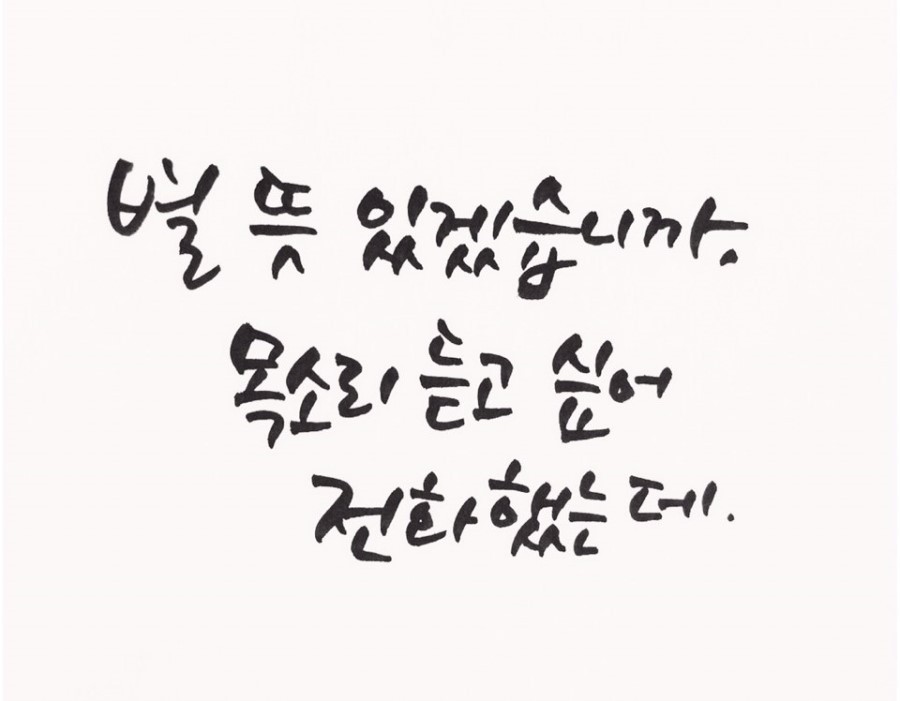 별 뜻 있겠습니까.
목소리 듣고 싶어
전화했는데.